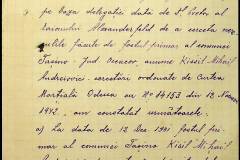 pe baza delegației data de Dl. Pretor al
raionului Alexanderfeld de a cerceta nere-
gulile făcute de fostul primar al comunei
Tasino, jud. Oceacov, anume Kisil Mihail
Andreievici, cercetări ordonate de Curtea
Marțială Odesa cu No 84153 din 12
1942, am constatat următoarele:
a) La data de 13 Dec 1941 fostul pri-
mar al comunei Tasino Kisil Mihail